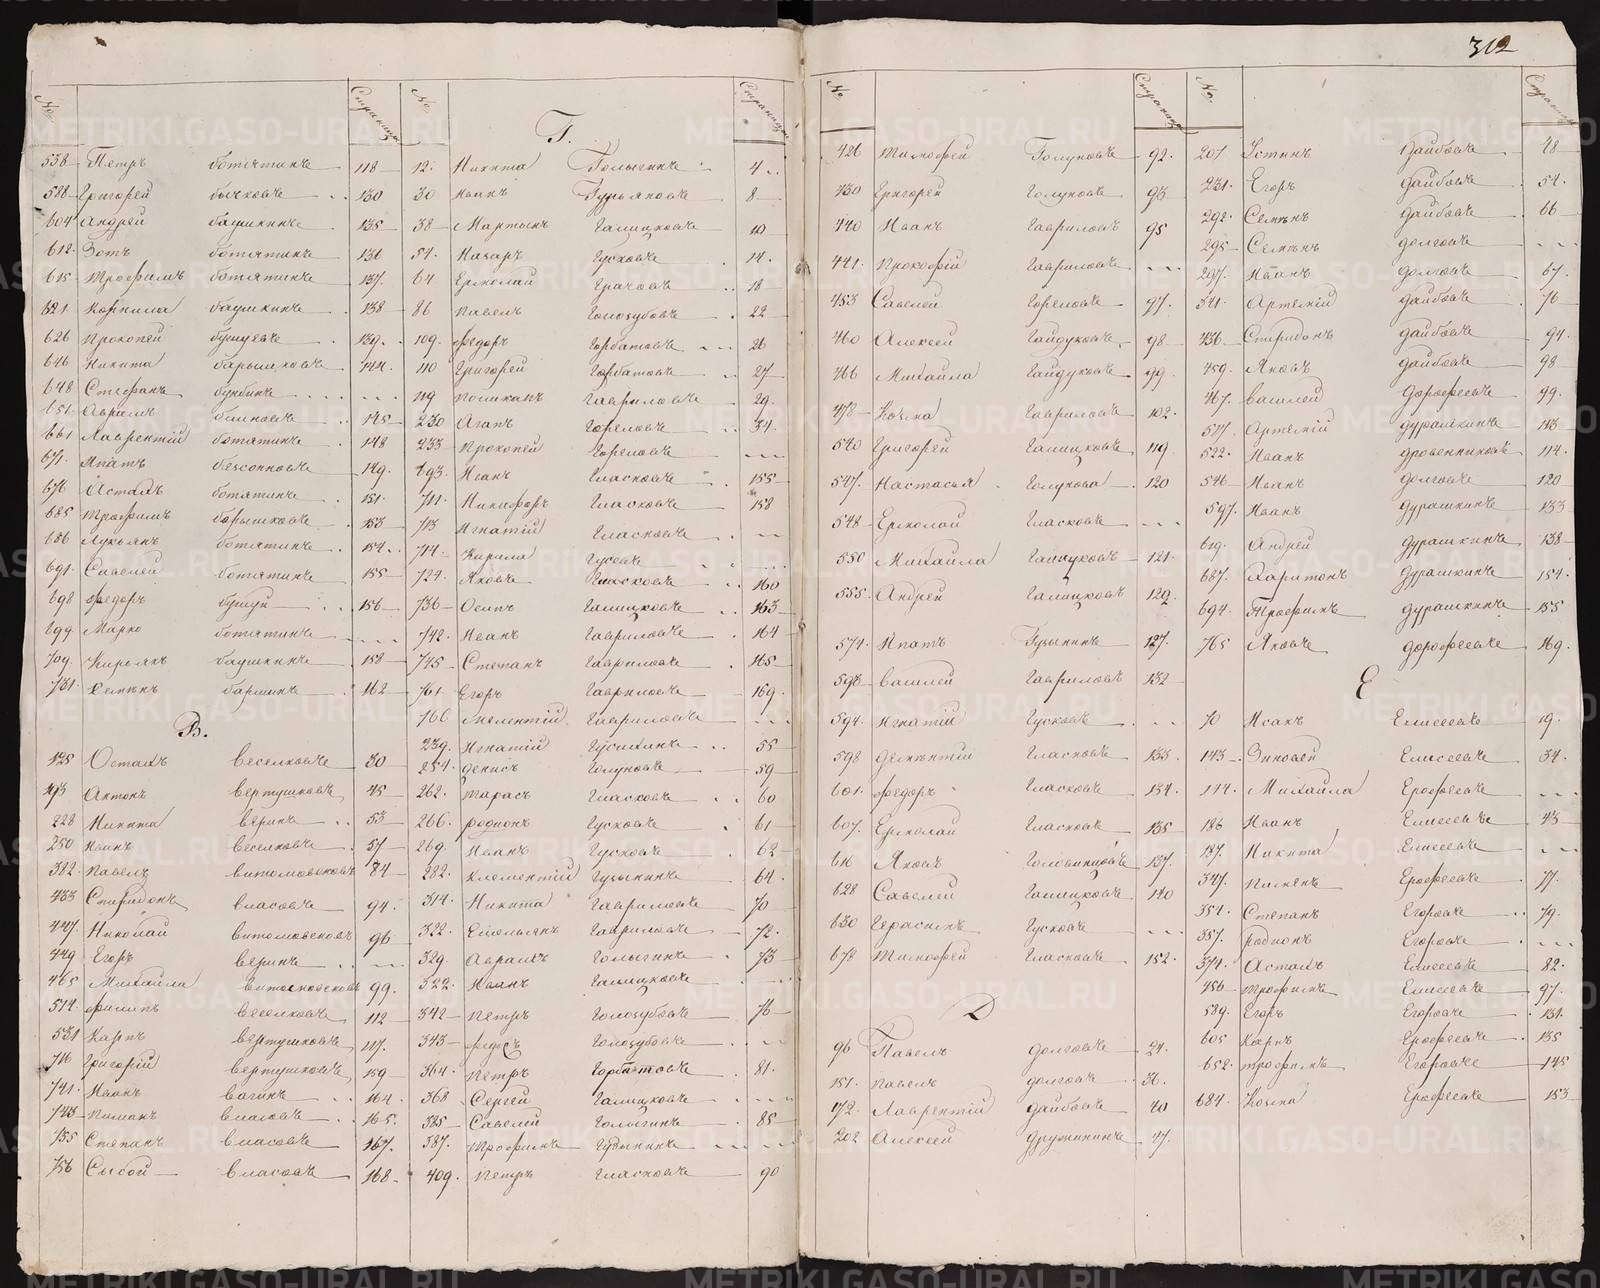 312
№ Страницы
538 Петръ ботятинъ 118
588 Григорей бычковъ 130
604 Андрей баушкинъ 135
612 Зотъ ботятинъ 136
615 Трофимъ ботятинъ 137
621 Корнила баушкинъ 138
626 Прокопей бушуевъ 139
646 Никита барышковъ 144
648 Стефанъ
651 Аврамъ блиновъ 145
661 Лаврентій ботятинъ 148
671 Ипатъ безсоновъ 149
676 Астахъ ботятинъ 151
685 Трофимъ барышковъ 153
686 Лукьянъ ботятинъ 154
691 Савелей ботятинъ 155
698 Федоръ 156
699 Марко ботятинъ
709 Кирьякъ баушкинъ 158
731 Семенъ 162
В.
125 Остахъ Веселковъ 30
193 Антонъ вертушковъ 45
228 Никита веринъ 53
250 Иванъ веселковъ 57
382 Павелъ 84
433 Спиридонъ власовъ 94
447 Николай 96
449 Егоръ веринъ
465 Михайла 99
514 Филипъ веселковъ 112
531 Карпъ вертушковъ 117
716 Григорій вертушковъ 159
741 Иванъ вагинъ 164
743 Пиманъ власовъ 165
755 Степанъ власовъ 167
756 Сысой власовъ 168
№ Страницы
Г.
12 Никита Голыгинъ 4
30 Иванъ Гурьяновъ 8
38 Мартынъ Галицковъ 10
54 Назаръ Гусковъ 14
64 Ермолай Грачовъ 18
86 Павелъ Голозубовъ 22
109 Федоръ Горбатовъ 26
110 Григорей Горбатовъ 27
119 Поликапъ Гавриловъ 29
230 Агапъ Гореловъ 54
233 Прокопей Гореловъ
693 Иванъ Гласковъ 155
711 Никифоръ Гласковъ 158
713 Игнатій Гласковъ
714 Кирила Гусевъ
724 Яковъ Гласковъ 160
736 Осипъ Галицковъ 163
742 Иванъ Гавриловъ 164
745 Степанъ Гавриловъ 165
761 Егоръ Гавриловъ 169
766 Мелентій Гавриловъ
239 Игнатій 55
254 Денисъ Голуновъ 59
262 Тарасъ Гласковъ 60
266 Родионъ Гусковъ 61
269 Иванъ Гусковъ 62
282 Клементій Гузынинъ 64
314 Никита Гавриловъ 70
322 Емельянъ Гавриловъ 72
329 Аврамъ Голыгинъ 73
322 Иванъ Галицковъ
342 Петръ Голозубовъ 76
343 Федоръ Голозубовъ
364 Петръ Горбатовъ 81
368 Сергей Галицковъ
385 Савелей Голыгинъ 85
387 Трофимъ Гузынинъ
409 Петръ Гласковъ 90
№ Страницы
426 Тимофей Голуновъ 92
430 Григорей Голуновъ 93
440 Иванъ Гавриловъ 95
441 Прокофій Гавриловъ
453 Савелей Гореловъ 97
460 Алексей Гайдуковъ 98
466 Михайла Гайдуковъ 99
478 Козма Гавриловъ 102
540 Григорей Галицковъ 119
547 Настасья Голунова 120
548 Ермолай Гласковъ
550 Михайла 121
555 Андрей Галицковъ 122
574 Ипатъ Гузынинъ 127
593 Василей Гавриловъ 132
594 Игнатій Гусковъ
598 Дементій Гласковъ 133
601 Федоръ Гласковъ 134
607 Ермолай Гласковъ 135
616 Яковъ Головинцовъ 137
628 Савелей Галицковъ 140
630 Герасимъ Гусковъ
672 Тимофей Гласковъ 152
Д
96 Павелъ Долговъ 24
151 Павелъ Долговъ 36
172 Лаврентій Дайбовъ 40
202 Алексей Дружининъ 47
№ Страницы
207 Устинъ Дайбовъ 48
231 Егоръ Дайбовъ 54
292 Семенъ Дайбовъ 66
295 Семенъ Долговъ
297 Иванъ Долговъ 67
341 Артемій Дайбовъ 76
436 Спиридонъ Дайбовъ 94
459 Яковъ Дайбовъ 98
467 Василей Дорофеевъ 99
517 Артемій Дурашкинъ 113
522 Иванъ Дровенниковъ 114
546 Иванъ Долговъ 120
597 Иванъ Дурашкинъ 133
619 Андрей Дурашкинъ 138
687 Харитонъ Дурашкинъ 154
694 Трофимъ Дурашкинъ 155
765 Яковъ Дорофеевъ 169
Е
70 Исакъ Елисеевъ 19
143 Зиновей Елисеевъ 34
144 Михайла Ерофеевъ
186 Иванъ Елисеевъ 43
187 Никита Елисеевъ
347 Пименъ Ерофеевъ 77
354 Степанъ Егоровъ 79
357 Родионъ Егоровъ
374 Астахъ Елисеевъ 82
456 Трофимъ Елисеевъ 97
589 Егоръ Егоровъ 131
605 Карпъ Ерофеевъ 135
652 Трофимъ Егоровъ 145
684 Козма Ерофеевъ 153
METRIKI.GASO-URAL.RU